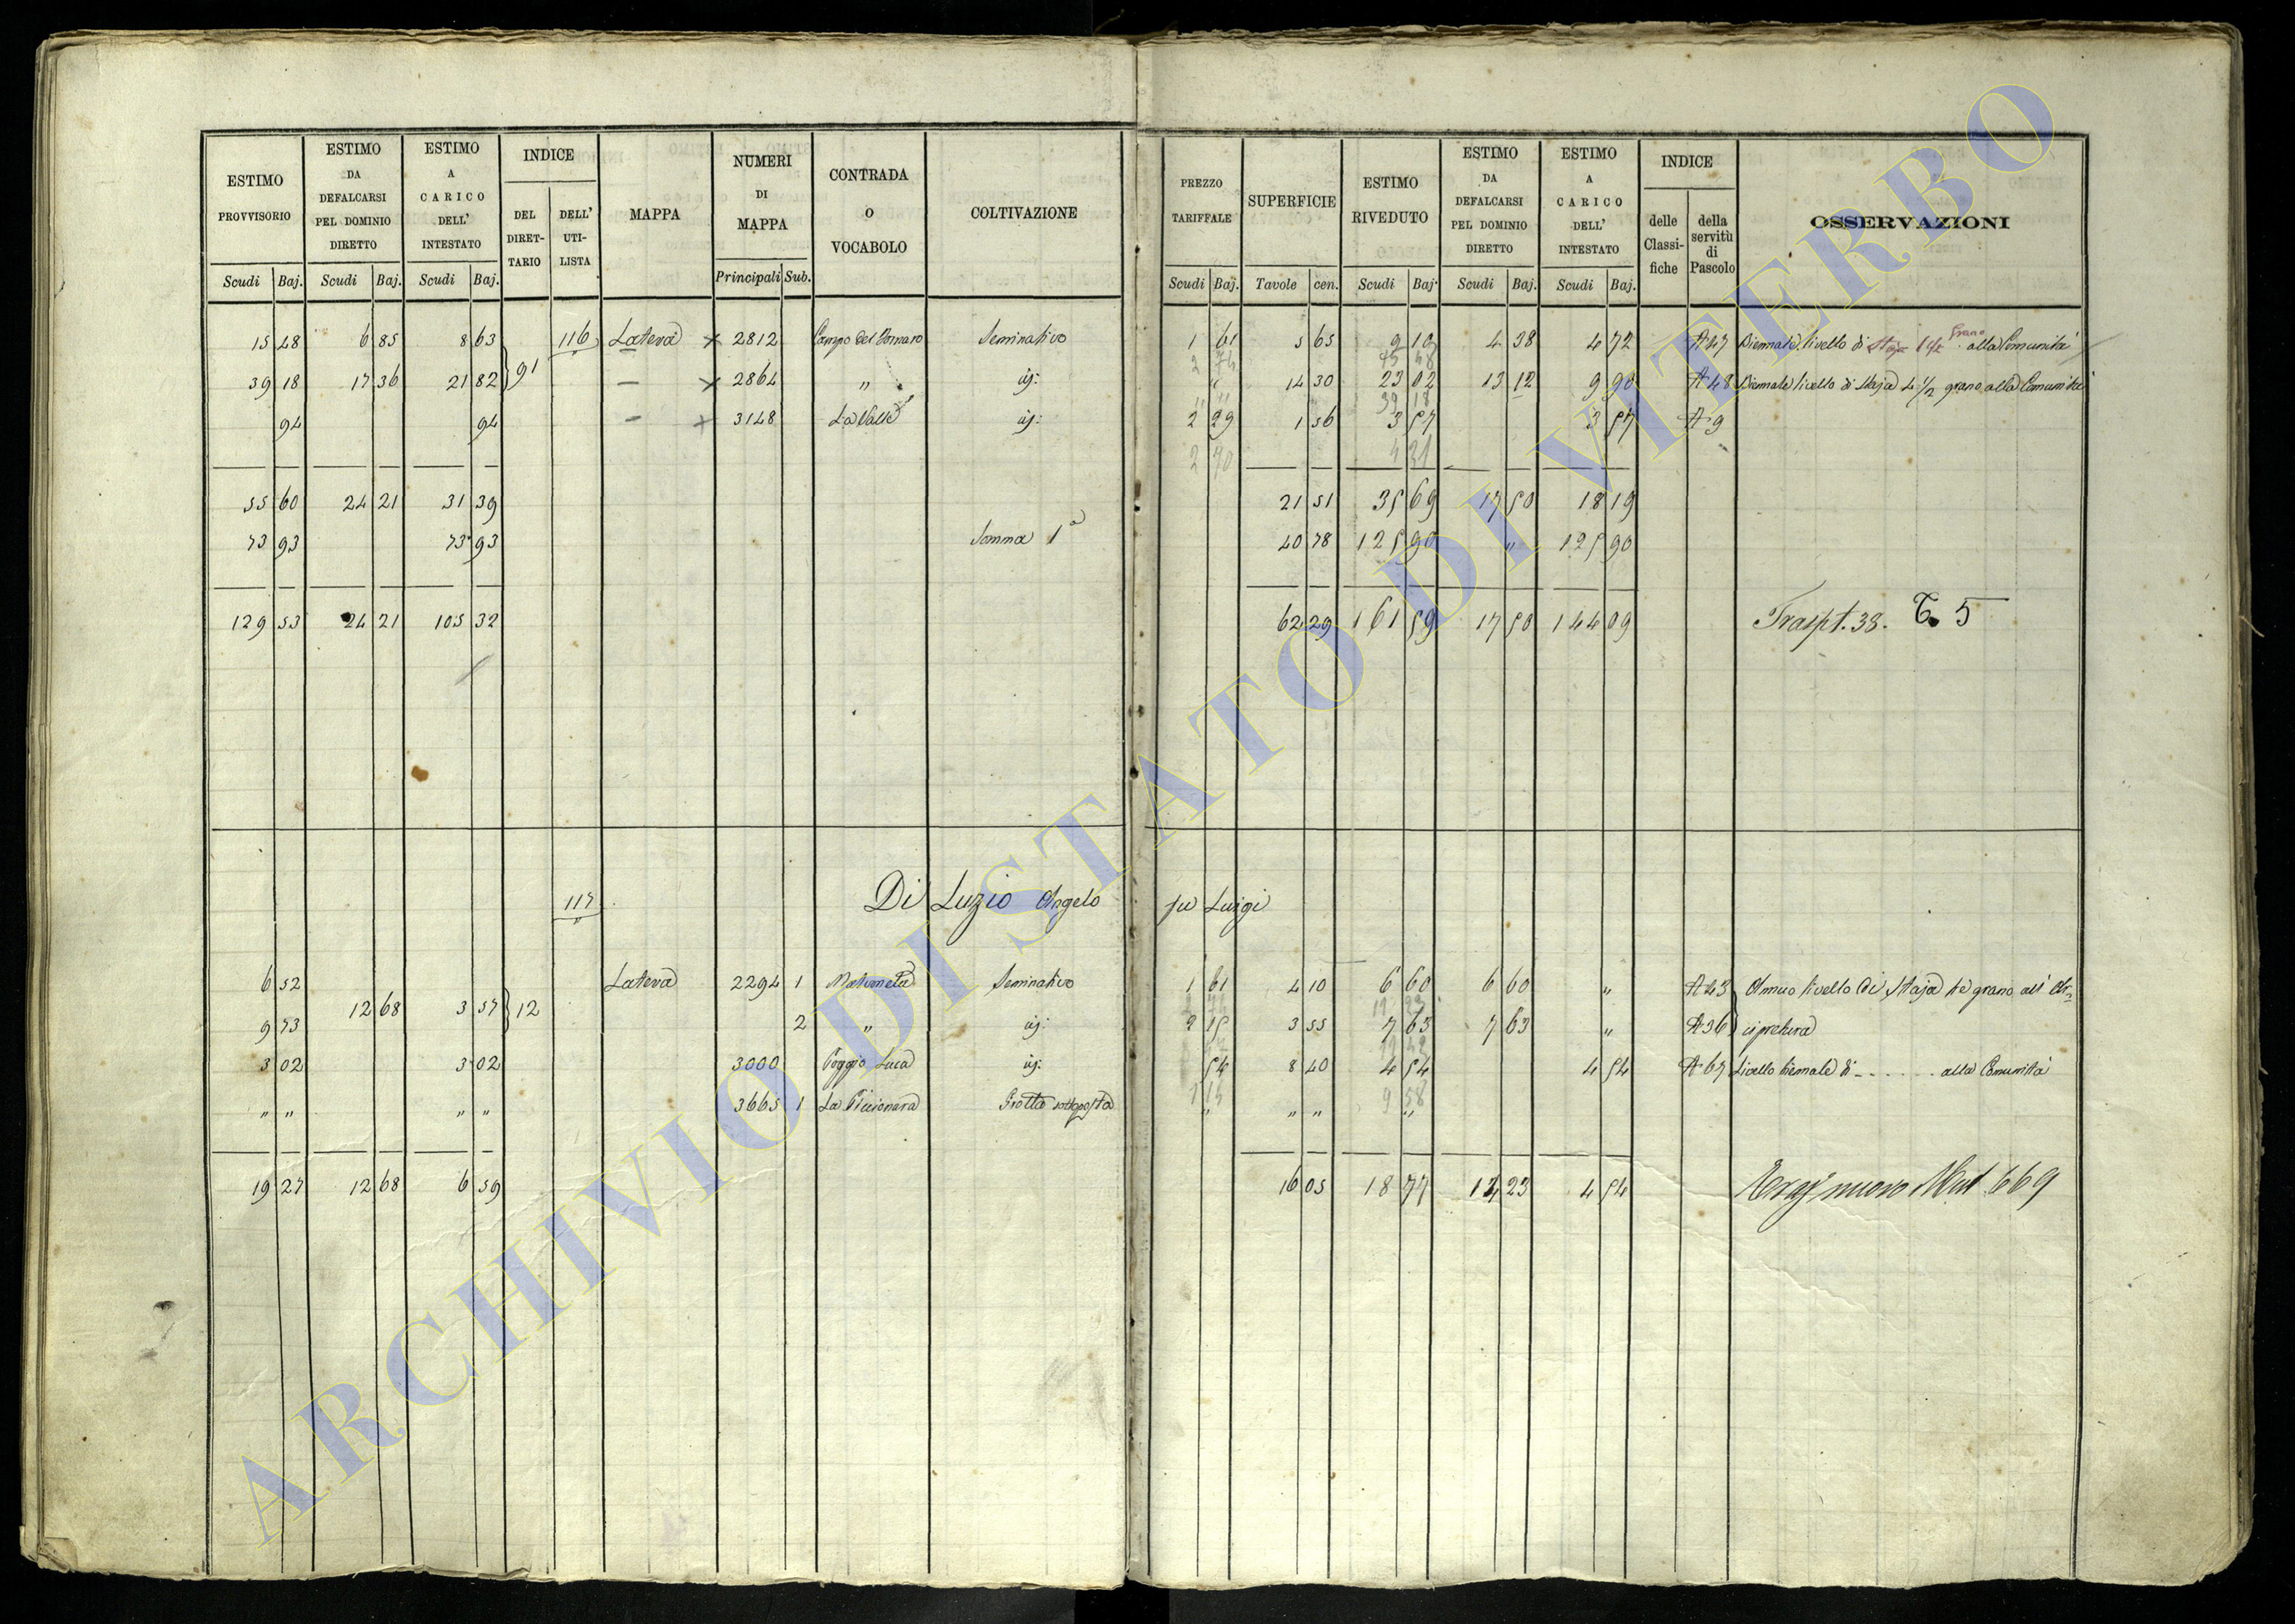 ESTIMO PROVVISORIO | ESTIMO DA DEFALCARSI PEL DOMINIO DIRETTO | ESTIMO A CARICO DELL' INTESTATO | INDICE | MAPPA | NUMERI DI MAPPA | CONTRADA O VOCABOLO | COLTIVAZIONE
DEL DIRET-TARIO | DELL' UTI-LISTA
Scudi | Baj. | Scudi | Baj. | Scudi | Baj. | Principali | Sub.
15 48 | 6 85 | 8 63 | 116 | Latera | 2812 | Campo del | Seminativo
39 18 | 17 36 | 21 82 | 91 | — | 2864 | " | id:
94 | 94 | — | 3148 | La Valle | id:
55 60 | 24 21 | 31 39
73 93 | 73 93 | Somma 1ª
129 53 | 24 21 | 105 32
117 | Di Luzio Angelo
6 52 | Latera | 2294 | 1 | Seminativo
12 68 | 3 57 | 12
9 73 | 2 | " | id:
3 02 | 3 02 | 3000 | Poggio Luca | id:
" " | " " | 3665 | 1 | La Piccionara | Grotta sottoposta
19 27 | 12 68 | 6 59
PREZZO TARIFFALE | SUPERFICIE | ESTIMO RIVEDUTO | ESTIMO DA DEFALCARSI PEL DOMINIO DIRETTO | ESTIMO A CARICO DELL' INTESTATO | INDICE | OSSERVAZIONI
delle Classi-fiche | della servitù di Pascolo
Scudi | Baj. | Tavole | cen. | Scudi | Baj. | Scudi | Baj. | Scudi | Baj.
1 61 | 5 65 | 9 10 | 4 38 | 4 72 | A 47 | Biennale livello di Staja grano alla Comunità
" | 14 30 | 23 02 | 13 12 | 9 90 | A 48 | Biennale livello di Staja 4 1/2 grano alla Comunità
2 29 | 1 56 | 3 57 | 3 57 | A 9
2 70 | 4 21
21 51 | 35 69 | 17 50 | 18 19
40 78 | 125 90 | " | 125 90
62 29 | 161 59 | 17 50 | 144 09 | Traspt. 38. T. 5
fu Luigi
1 61 | 4 10 | 6 60 | 6 60 | " | A 43 | Annuo livello di Staja tre grano all' Ar=
2 15 | 3 55 | 7 63 | 7 63 | " | A 36 | cipretura
54 | 8 40 | 4 54 | 4 54 | A 67 | Livello biennale di - - - - - alla Comunità
1 14 | 9 58
" | " " | "
16 05 | 18 77 | 14 23 | 4 54 | nuovo 669
ARCHIVIO DI STATO DI VITERBO